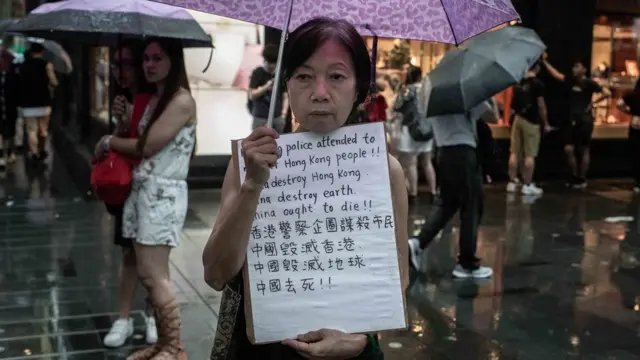 police attended to
Hong Kong people!!
destroy Hong Kong
destroy earth.
ought to die!!
香港警察企圖謀殺市民
中國毀滅香港
中國毀滅地球
中國去死!!